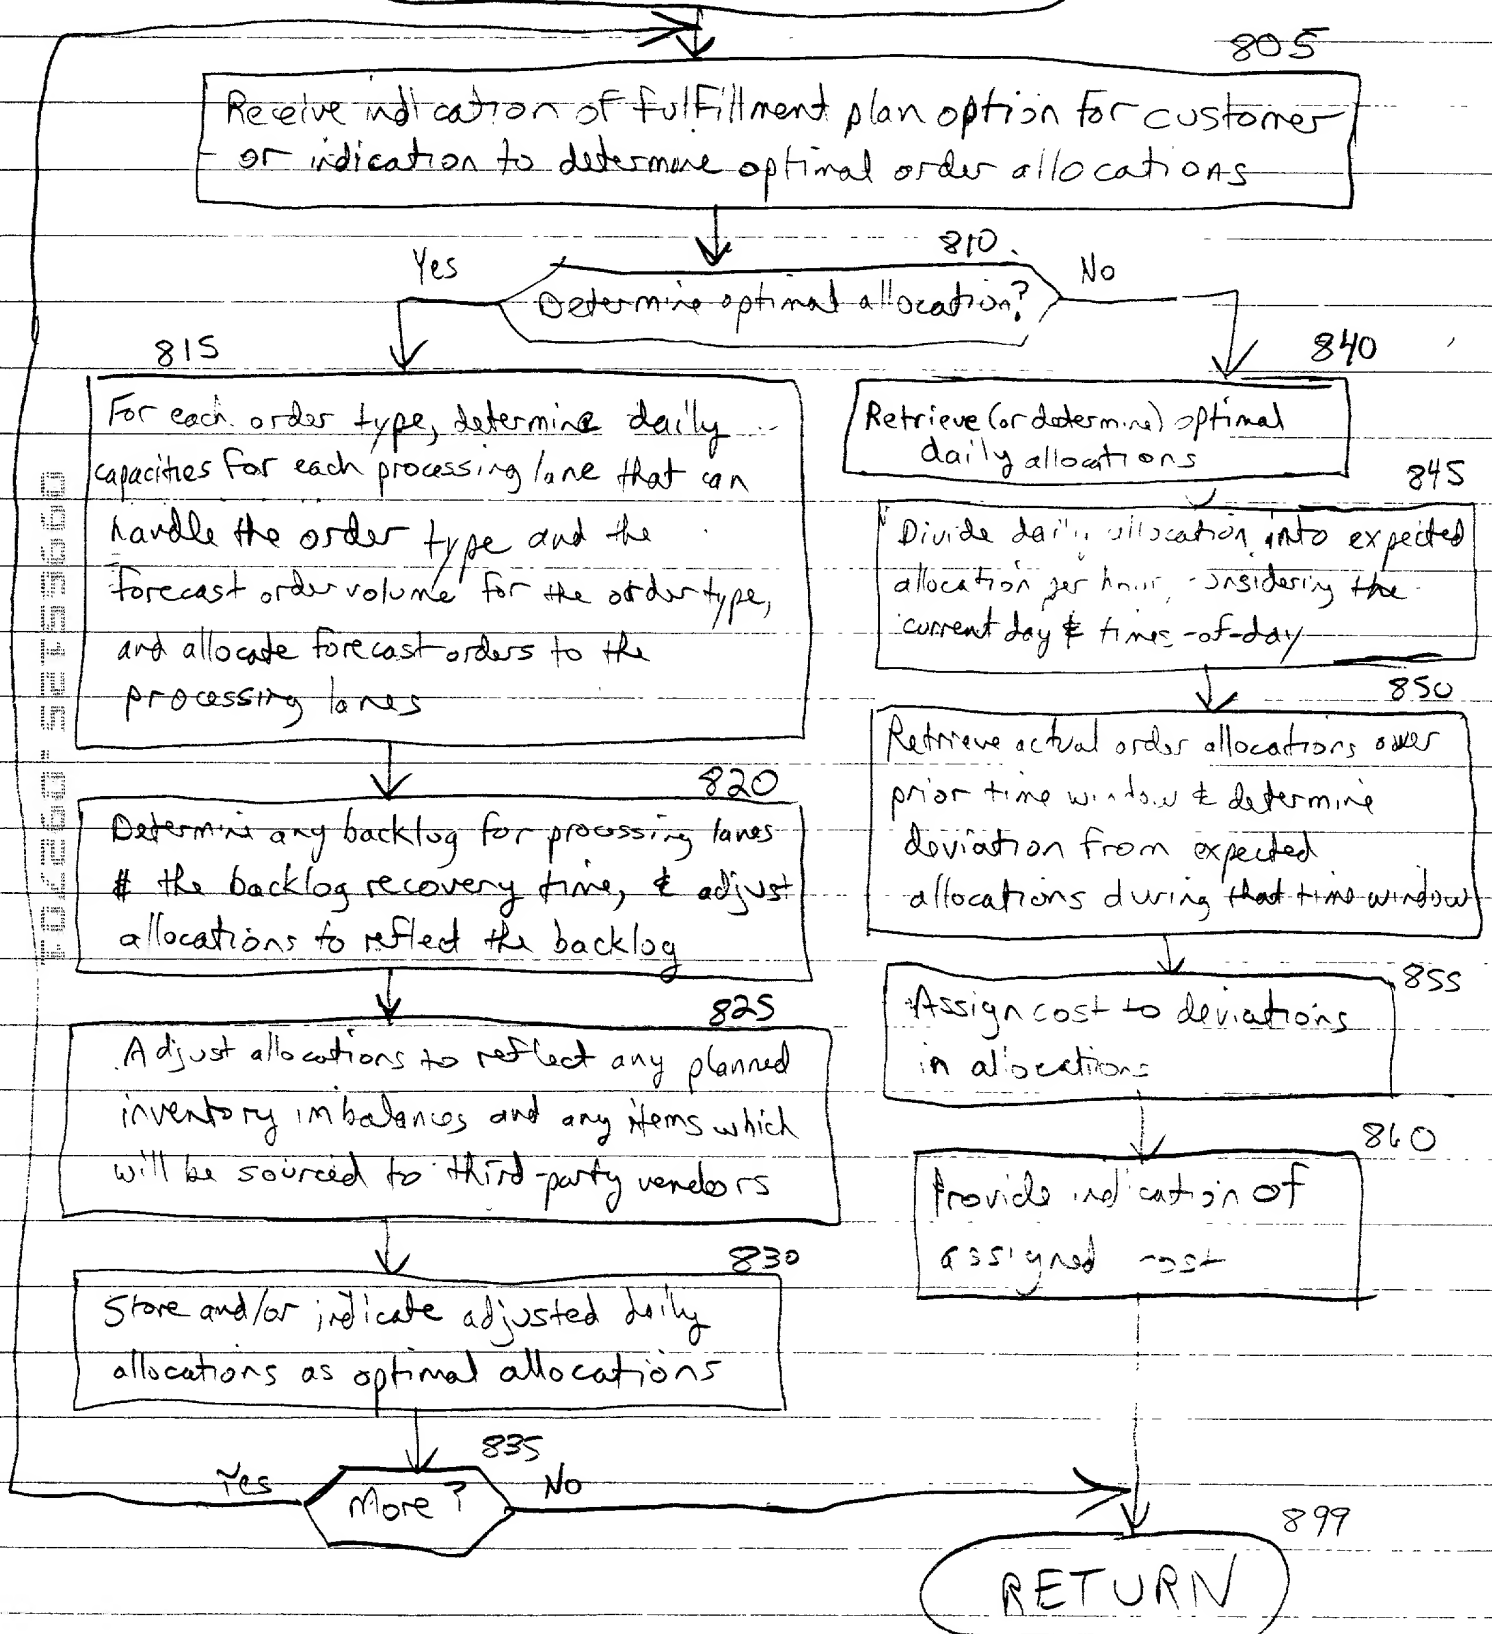 805
Receive indication of fulfillment plan option for customer
or indication to determine optimal order allocations
810
Yes
No
Determine optimal allocation?
815
For each order type, determine daily
capacities for each processing lane that can
handle the order type and the
forecast order volume for the order type,
and allocate forecast orders to the
processing lanes
820
Determine any backlog for processing lanes
& the backlog recovery time, & adjust
allocations to reflect the backlog
825
Adjust allocations to reflect any planned
inventory imbalances and any items which
will be sourced to third-party vendors
830
Store and/or indicate adjusted daily
allocations as optimal allocations
835
Yes
More?
No
840
Retrieve (or determine) optimal
daily allocations
845
Divide daily allocation into expected
allocation per hour, considering the
current day & times-of-day
850
Retrieve actual order allocations over
prior time window & determine
deviation from expected
allocations during that time window
855
Assign cost to deviations
in allocations
860
Provide indication of
assigned cost
899
RETURN